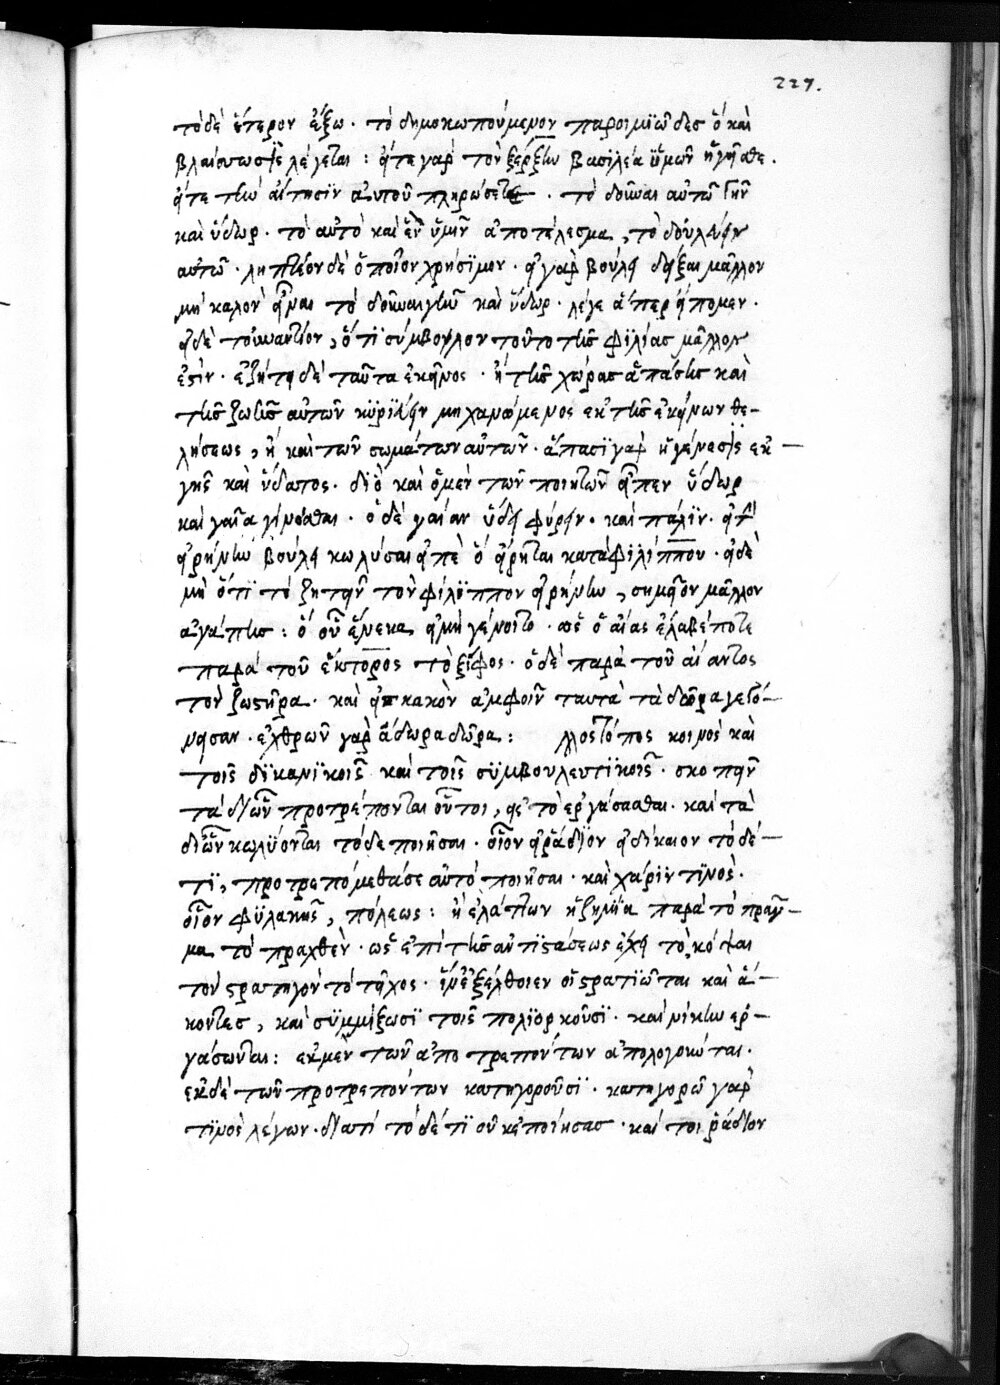 227.
τὸ δὲ ἕτερον ἔξω · τὸ δημοκωπούμενον παροιμϊῶδες ὃ καὶ
βλαίσωσις λέγεται : εἴτε γὰρ τὸν ξέρξην βασϊλέα ὑμῶν ἡγεῖσθε ·
εἴτε τὴν αἴτησϊν αὐτοῦ πληρώσετε · τὸ δοῦναι αὐτῶ γῆν
καὶ ὕδωρ · τὸ αὐτὸ καὶ ἓν ὑμῖν ἀποτέλεσμα, τὸ δουλεύειν
αὐτῶ · ληπτέον δὲ ὁποῖον χρήσϊμον · εἰ γὰρ βούλει δεῖξαι μᾶλλον
μὴ καλὸν εἶναι τὸ δοῦναι γῆν καὶ ὕδωρ · λέγε ἅπερ εἴπομεν ·
εἰ δὲ τοὐναντίον, ὅτϊ σύμβουλον τοῦτο τῆς φϊλίας μᾶλλον
ἐστὶν · ἐζήτει δὲ ταῦτα ἐκεῖνος · ἢ τῆς χώρας ἁπάσης καὶ
τῆς ζωῆς αὐτῶν κϋρϊεύειν μηχανώμενος ἐκ τῆς ἐκείνων θε-
λήσεως, ἢ καὶ τῶν σωμάτων αὐτῶν · ἅπασϊ γὰρ ἡ γένεσϊς ἐκ -
γῆς καὶ ὕδατος · δϊὸ καὶ ὁ μὲν τῶν ποιητῶν εἶπεν ὕδωρ
καὶ γαῖα γίνεσθαι · ὁ δὲ γαίαν ὕδει φύρειν · καὶ πάλϊν · εἰ τ'
εἰρήνην βούλει κωλύσαι εἰπὲ ὃ εἴρηται κατὰ φϊλίππου · εἰ δὲ
μὴ ὅτϊ τὸ ζητεῖν τὸν φίλϊππον εἰρήνην, σημεῖον μᾶλλον
ἀγάπης : ὃ οὗ ἕνεκα εἰ μὴ γένοιτο · ὡς ὁ αἴας ἔλαβέ ποτε
παρὰ τοῦ ἕκτορος τὸ ξίφος · ὁ δὲ παρὰ τοῦ αἴαντος
τὸν ζωστῆρα · καὶ εἰς κακὸν ἀμφοῖν ταυτὰ τὰ δῶρα γεγό-
νασαν · ἐχθρῶν γὰρ ἄδωρα δῶρα : λλος τόπος κοινὸς καὶ
τοῖς δϊκανϊκοῖς καὶ τοῖς σϋμβουλευτϊκοῖς · σκοπεῖν
τὰ δι' ὧν προτρέπονται οὗτοι, εἰς τὸ ἐργάσασθαι · καὶ τὰ
δι' ὧν κωλϋονται τόδε ποιῆσαι · οἷον εἰ ῥάδϊον εἰ δίκαιον τὸ δέ-
τϊ, προτρεπόμεθά σε αὐτὸ ποιῆσαι · καὶ χάρϊν τϊνὸς ·
οἷον φϋλακῆς, πόλεως : ἢ ἐλάττων ἡ ζημϊα παρὰ τὸ πρᾶγ-
μα τὸ πραχθὲν · ὡς ἐπὶ τῆς ἀντϊστάσεως ἔχει τὸ, κόψαι
τὸν στρατηγὸν τὸ τεῖχος · ἵν' ἐξέλθοιεν οἱ στρατϊῶται καὶ ἄ-
κοντες, καὶ σϋμμίξωσϊ τοῖς πολϊορκοῦσϊ · καὶ νίκην ἐρ-
γάσωνται : ἐκ μὲν τῶν ἀποτρεπόντων ἀπολογοῦνται ·
ἐκ δὲ τῶν προτρεπόντων κατηγοροῦσϊ · κατηγορῶ γάρ
τϊνος λέγων · διατί τὸ δέ τϊ οὐκ ἐποίησας · καί τοι ῥάδϊον